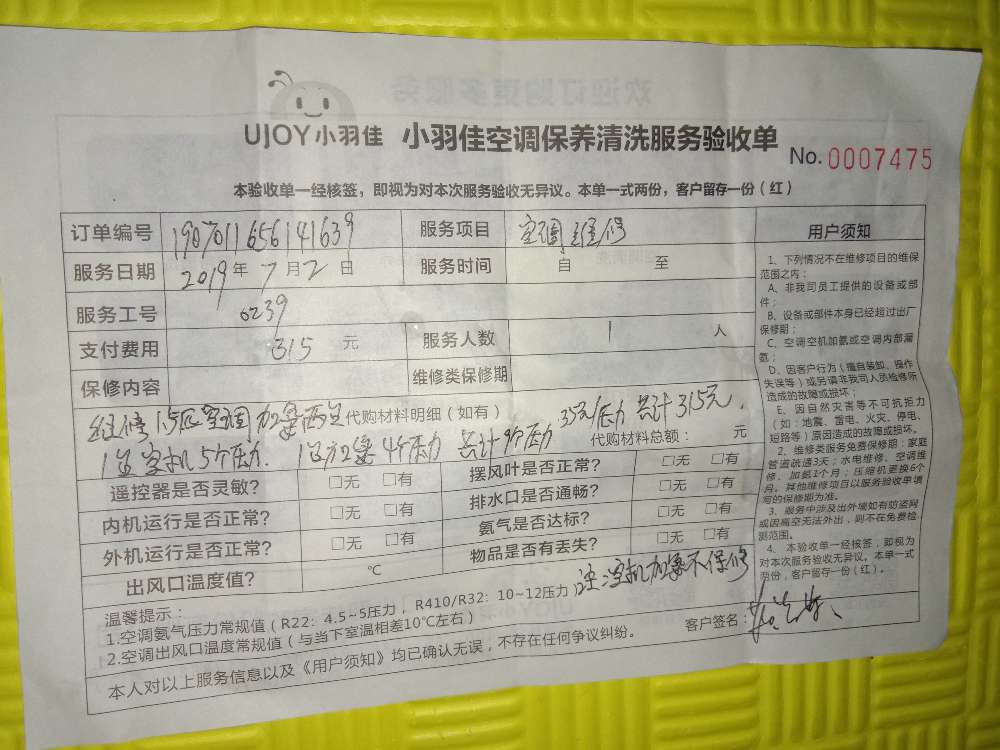 UJOY小羽佳 小羽佳空调保养清洗服务验收单
No. 0007475
本验收单一经核签，即视为对本次服务验收无异议。本单一式两份，客户留存一份（红）
订单编号 1907011656141639 服务项目 空调维修
服务日期 2019年7月2日 服务时间 自 至
服务工号 0239
支付费用 315 元 服务人数 1 人
保修内容 维修类保修期
维修1.5匹空调加氨两台 代购材料明细（如有）
1台空机5个压力. 1台加氨4个压力 共计9个压力 35元/压力 共计315元.
代购材料总额： 元
遥控器是否灵敏? □无 □有 摆风叶是否正常? □无 □有
内机运行是否正常? □无 □有 排水口是否通畅? □无 □有
外机运行是否正常? □无 □有 氨气是否达标? □无 □有
出风口温度值? ℃ 物品是否有丢失? □无 □有
温馨提示：
1.空调氨气压力常规值（R22：4.5~5压力，R410/R32：10~12压力）
2.空调出风口温度常规值（与当下室温相差10℃左右）
注:空机加氨不保修
本人对以上服务信息以及《用户须知》均已确认无误，不存在任何争议纠纷。
客户签名：
用户须知
1、下列情况不在维修项目的维保
范围之内：
A、非我司员工提供的设备或部
件；
B、设备或部件本身已经超过出厂
保修期；
C、空调空机加氨或空调内部漏
氨；
D、因客户行为（擅自装卸、操作
失误等）或另请非我司人员检修所
造成的故障或损坏；
E、因自然灾害等不可抗拒力
（如：地震、雷电、火灾、停电、
短路等）原因造成的故障或损坏。
2、维修类服务免费保修期：家庭
管道疏通3天；水电维修、空调维
修、加氨1个月；压缩机更换6个
月。其他维修项目以服务验收单填
写的保修期为准。
3、服务中涉及出外墙如有防盗网
或因高空无法外出，则不在免费检
测范围。
4、本验收单一经核签，即视为
对本次服务验收无异议。本单一式
两份，客户留存一份（红）。
欢迎订购更多服务